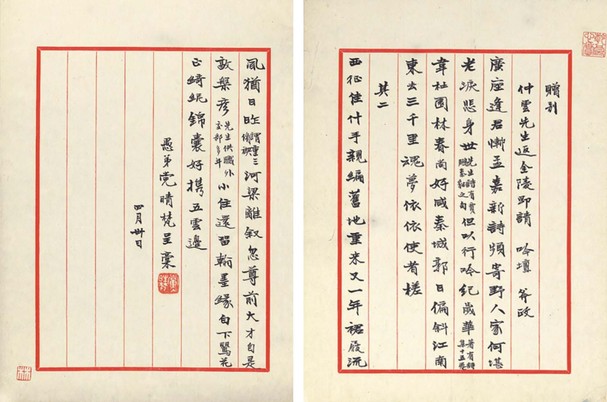 贈別
仲雲先生返金陵即請 吟壇 斧政
廣座逢君慚孟嘉新詩頻寄野人家何堪
老淚悲身世先生詩有但以行吟紀歲華著有詩集十五卷
韋杜園林春尚好咸秦城郭日偏斜江南
東去三千里魂夢依依使者槎
其二
西征佳什手親編舊地重來又一年裙屐流
風猶日昨河梁離敘忽尊前大才自是
敦槃彥先生供職外交部多年小住還留翰墨緣白下鶯花
正綺妮錦囊好攜五雲邊
愚弟党晴梵呈稾
四月卅日